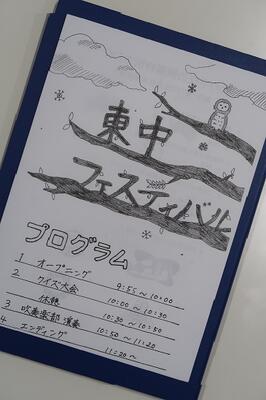 東中
フェスティバル
プログラム
1 オープニング 9:55～10:00
2 クイズ大会 10:00～10:30
休憩 10:30～10:50
3 吹奏楽部 演奏 10:50～11:20
4 エンディング 11:20～